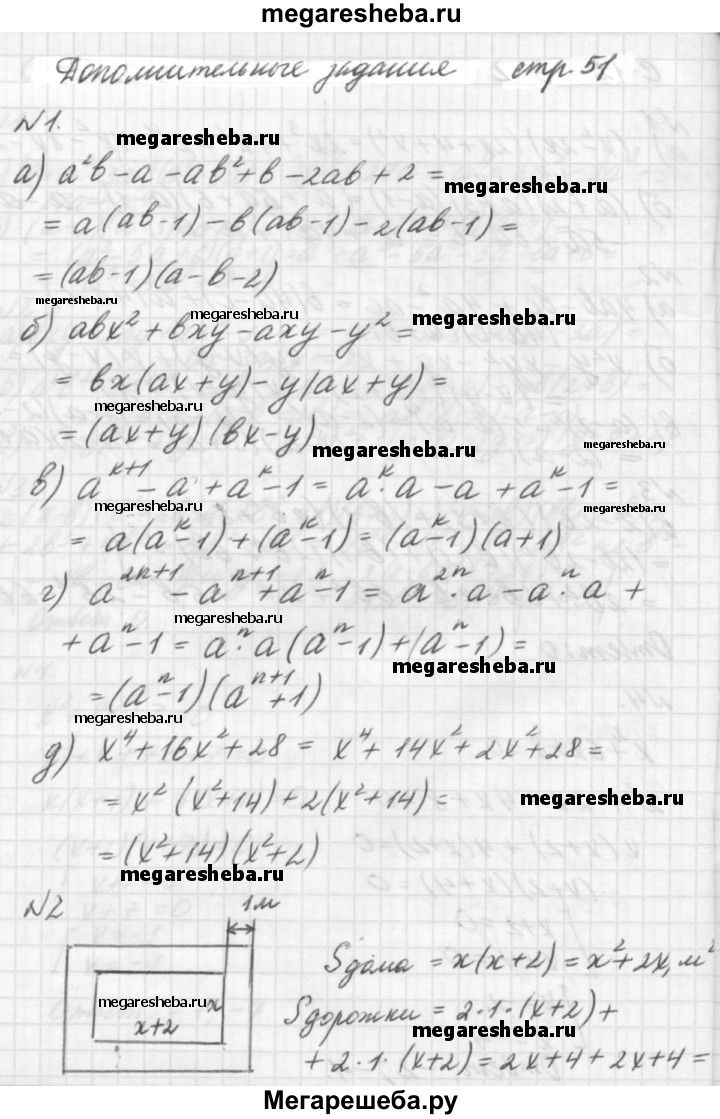 megaresheba.ru
Дополнительные задания стр. 51
№1.
megaresheba.ru
а) a²b - a - ab² + b - 2ab + 2 =
megaresheba.ru
= a(ab-1) - b(ab-1) - 2(ab-1) =
= (ab-1)(a-b-2)
megaresheba.ru
megaresheba.ru
megaresheba.ru
б) abx² + bxy - axy - y² =
= bx(ax+y) - y(ax+y) =
megaresheba.ru
= (ax+y)(bx-y)
megaresheba.ru
megaresheba.ru
в) aᵏ⁺¹ - a + aᵏ - 1 = aᵏ·a - a + aᵏ - 1 =
megaresheba.ru
megaresheba.ru
= a(aᵏ-1) + (aᵏ-1) = (aᵏ-1)(a+1)
г) a²ⁿ⁺¹ - aⁿ⁺¹ + aⁿ - 1 = a²ⁿ·a - aⁿ·a +
megaresheba.ru
+ aⁿ - 1 = aⁿ·a(aⁿ-1) + (aⁿ-1) =
megaresheba.ru
= (aⁿ-1)(aⁿ⁺¹+1)
megaresheba.ru
д) x⁴ + 16x² + 28 = x⁴ + 14x² + 2x² + 28 =
= x²(x²+14) + 2(x²+14) =
megaresheba.ru
= (x²+14)(x²+2)
megaresheba.ru
№2
1м
Sдома = x(x+2) = x² + 2x, м²
megaresheba.ru
x
x+2
Sдорожки = 2·1·(x+2) +
megaresheba.ru
+ 2·1·(x+2) = 2x + 4 + 2x + 4 =
Мегарешеба.ру